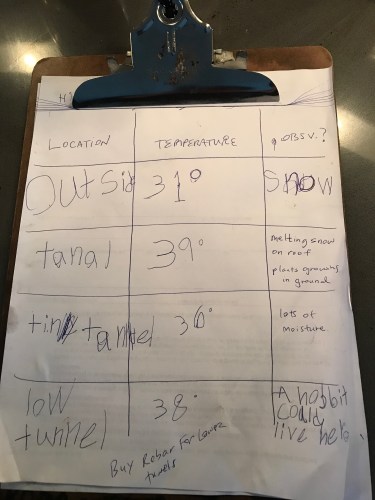 H
LOCATION TEMPERATURE OBSV.?
OutSid 31° SNOW
tanal 39° melting snow
on roof
plants growing
in ground
tiny tannel 36° lots of
moisture
low 38° A hobbit
tunnel could
live here
Buy Rebar For Lower
tunels